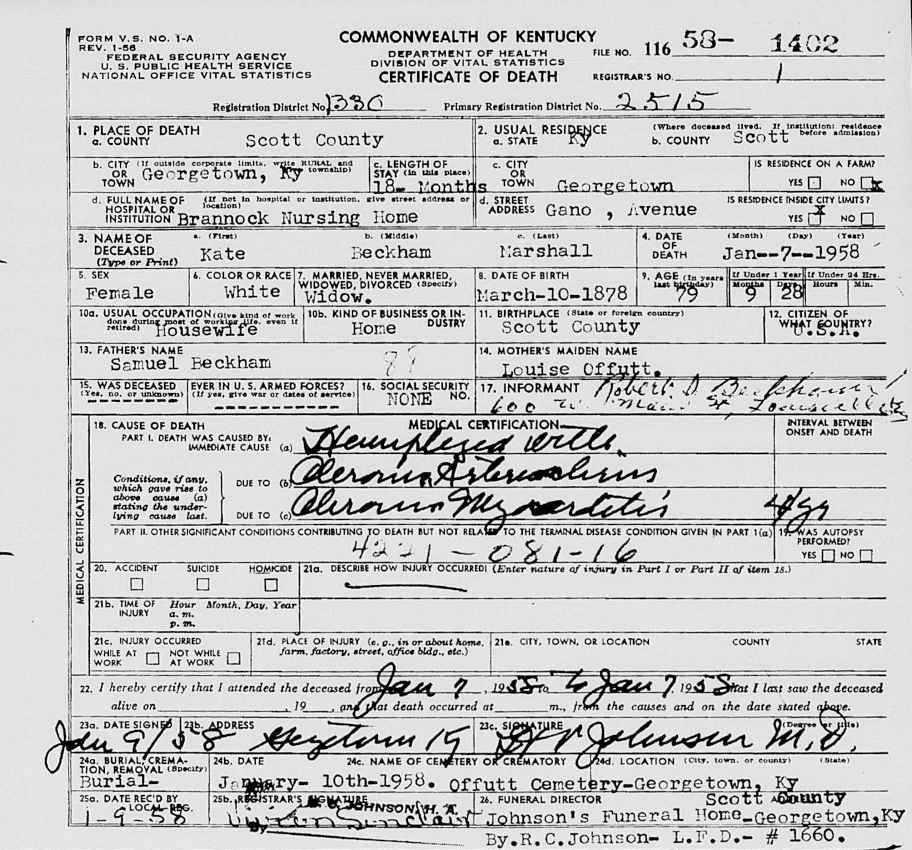 FORM V.S. NO. 1-A
REV. 1-56
FEDERAL SECURITY AGENCY
U. S. PUBLIC HEALTH SERVICE
NATIONAL OFFICE VITAL STATISTICS
COMMONWEALTH OF KENTUCKY
DEPARTMENT OF HEALTH
DIVISION OF VITAL STATISTICS
CERTIFICATE OF DEATH
FILE NO. 116 58- 1402
REGISTRAR'S NO. 1
Registration District No. 1330 Primary Registration District No. 2515
1. PLACE OF DEATH
a. COUNTY Scott County
2. USUAL RESIDENCE (Where deceased lived. If institution: residence before admission)
a. STATE Ky b. COUNTY Scott
b. CITY (If outside corporate limits, write RURAL and township)
OR TOWN Georgetown, Ky
c. LENGTH OF STAY (in this place)
18- Months
c. CITY OR TOWN Georgetown
IS RESIDENCE ON A FARM?
YES NO x
d. FULL NAME OF HOSPITAL OR INSTITUTION (If not in hospital or institution, give street address or location)
Brannock Nursing Home
d. STREET ADDRESS Gano , Avenue
IS RESIDENCE INSIDE CITY LIMITS?
YES x NO
3. NAME OF DECEASED (Type or Print)
a. (First) b. (Middle) c. (Last)
Kate Beckham Marshall
4. DATE OF DEATH (Month) (Day) (Year)
Jan--7--1958
5. SEX
Female
6. COLOR OR RACE
White
7. MARRIED, NEVER MARRIED, WIDOWED, DIVORCED (Specify)
Widow.
8. DATE OF BIRTH
March-10-1878
9. AGE (In years last birthday)
79
If Under 1 Year If Under 24 Hrs.
Months Days Hours Min.
9 28
10a. USUAL OCCUPATION (Give kind of work done during most of working life, even if retired)
Housewife
10b. KIND OF BUSINESS OR INDUSTRY
Home
11. BIRTHPLACE (State or foreign country)
Scott County
12. CITIZEN OF WHAT COUNTRY?
U.S.A.
13. FATHER'S NAME
Samuel Beckham
14. MOTHER'S MAIDEN NAME
Louise Offutt.
15. WAS DECEASED EVER IN U. S. ARMED FORCES?
(Yes, no, or unknown) (If yes, give war or dates of service)
16. SOCIAL SECURITY NO.
NONE
17. INFORMANT Robert
600 W. Main St, Louisville Ky
18. CAUSE OF DEATH
MEDICAL CERTIFICATION
INTERVAL BETWEEN ONSET AND DEATH
PART I. DEATH WAS CAUSED BY:
IMMEDIATE CAUSE (a)
Conditions, if any, which gave rise to above cause (a) stating the underlying cause last.
DUE TO (b)
DUE TO (c) Myocarditis 4 yr
PART II. OTHER SIGNIFICANT CONDITIONS CONTRIBUTING TO DEATH BUT NOT RELATED TO THE TERMINAL DISEASE CONDITION GIVEN IN PART 1(a)
4221-081-16
19. WAS AUTOPSY PERFORMED?
YES NO
MEDICAL CERTIFICATION
20. ACCIDENT SUICIDE HOMICIDE
21a. DESCRIBE HOW INJURY OCCURRED! (Enter nature of injury in Part I or Part II of item 18.)
21b. TIME OF INJURY Hour Month, Day, Year
a. m.
p. m.
21c. INJURY OCCURRED
WHILE AT WORK NOT WHILE AT WORK
21d. PLACE OF INJURY (e. g., in or about home, farm, factory, street, office bldg., etc.)
21e. CITY, TOWN, OR LOCATION COUNTY STATE
22. I hereby certify that I attended the deceased from Jan 7, 1958 to Jan 7, 1958 that I last saw the deceased
alive on , 19 , and that death occurred at m., from the causes and on the date stated above.
23a. DATE SIGNED
Jan 9/58
23b. ADDRESS
Geogetown Ky
23c. SIGNATURE (Degree or title)
Johnson M.D.
24a. BURIAL, CREMATION, REMOVAL (Specify)
Burial-
24b. DATE
January- 10th-1958.
24c. NAME OF CEMETERY OR CREMATORY 24d. LOCATION (City, town, or county) (State)
Offutt Cemetery-Georgetown, Ky
25a. DATE REC'D BY LOCAL REG.
1-9-58
25b. REGISTRAR'S SIGNATURE
JOHNSON H. A.
Sinclair
By
26. FUNERAL DIRECTOR
Scott County
Johnson's Funeral Home-Georgetown,Ky
By.R.C.Johnson- L.F.D.- # 1660.